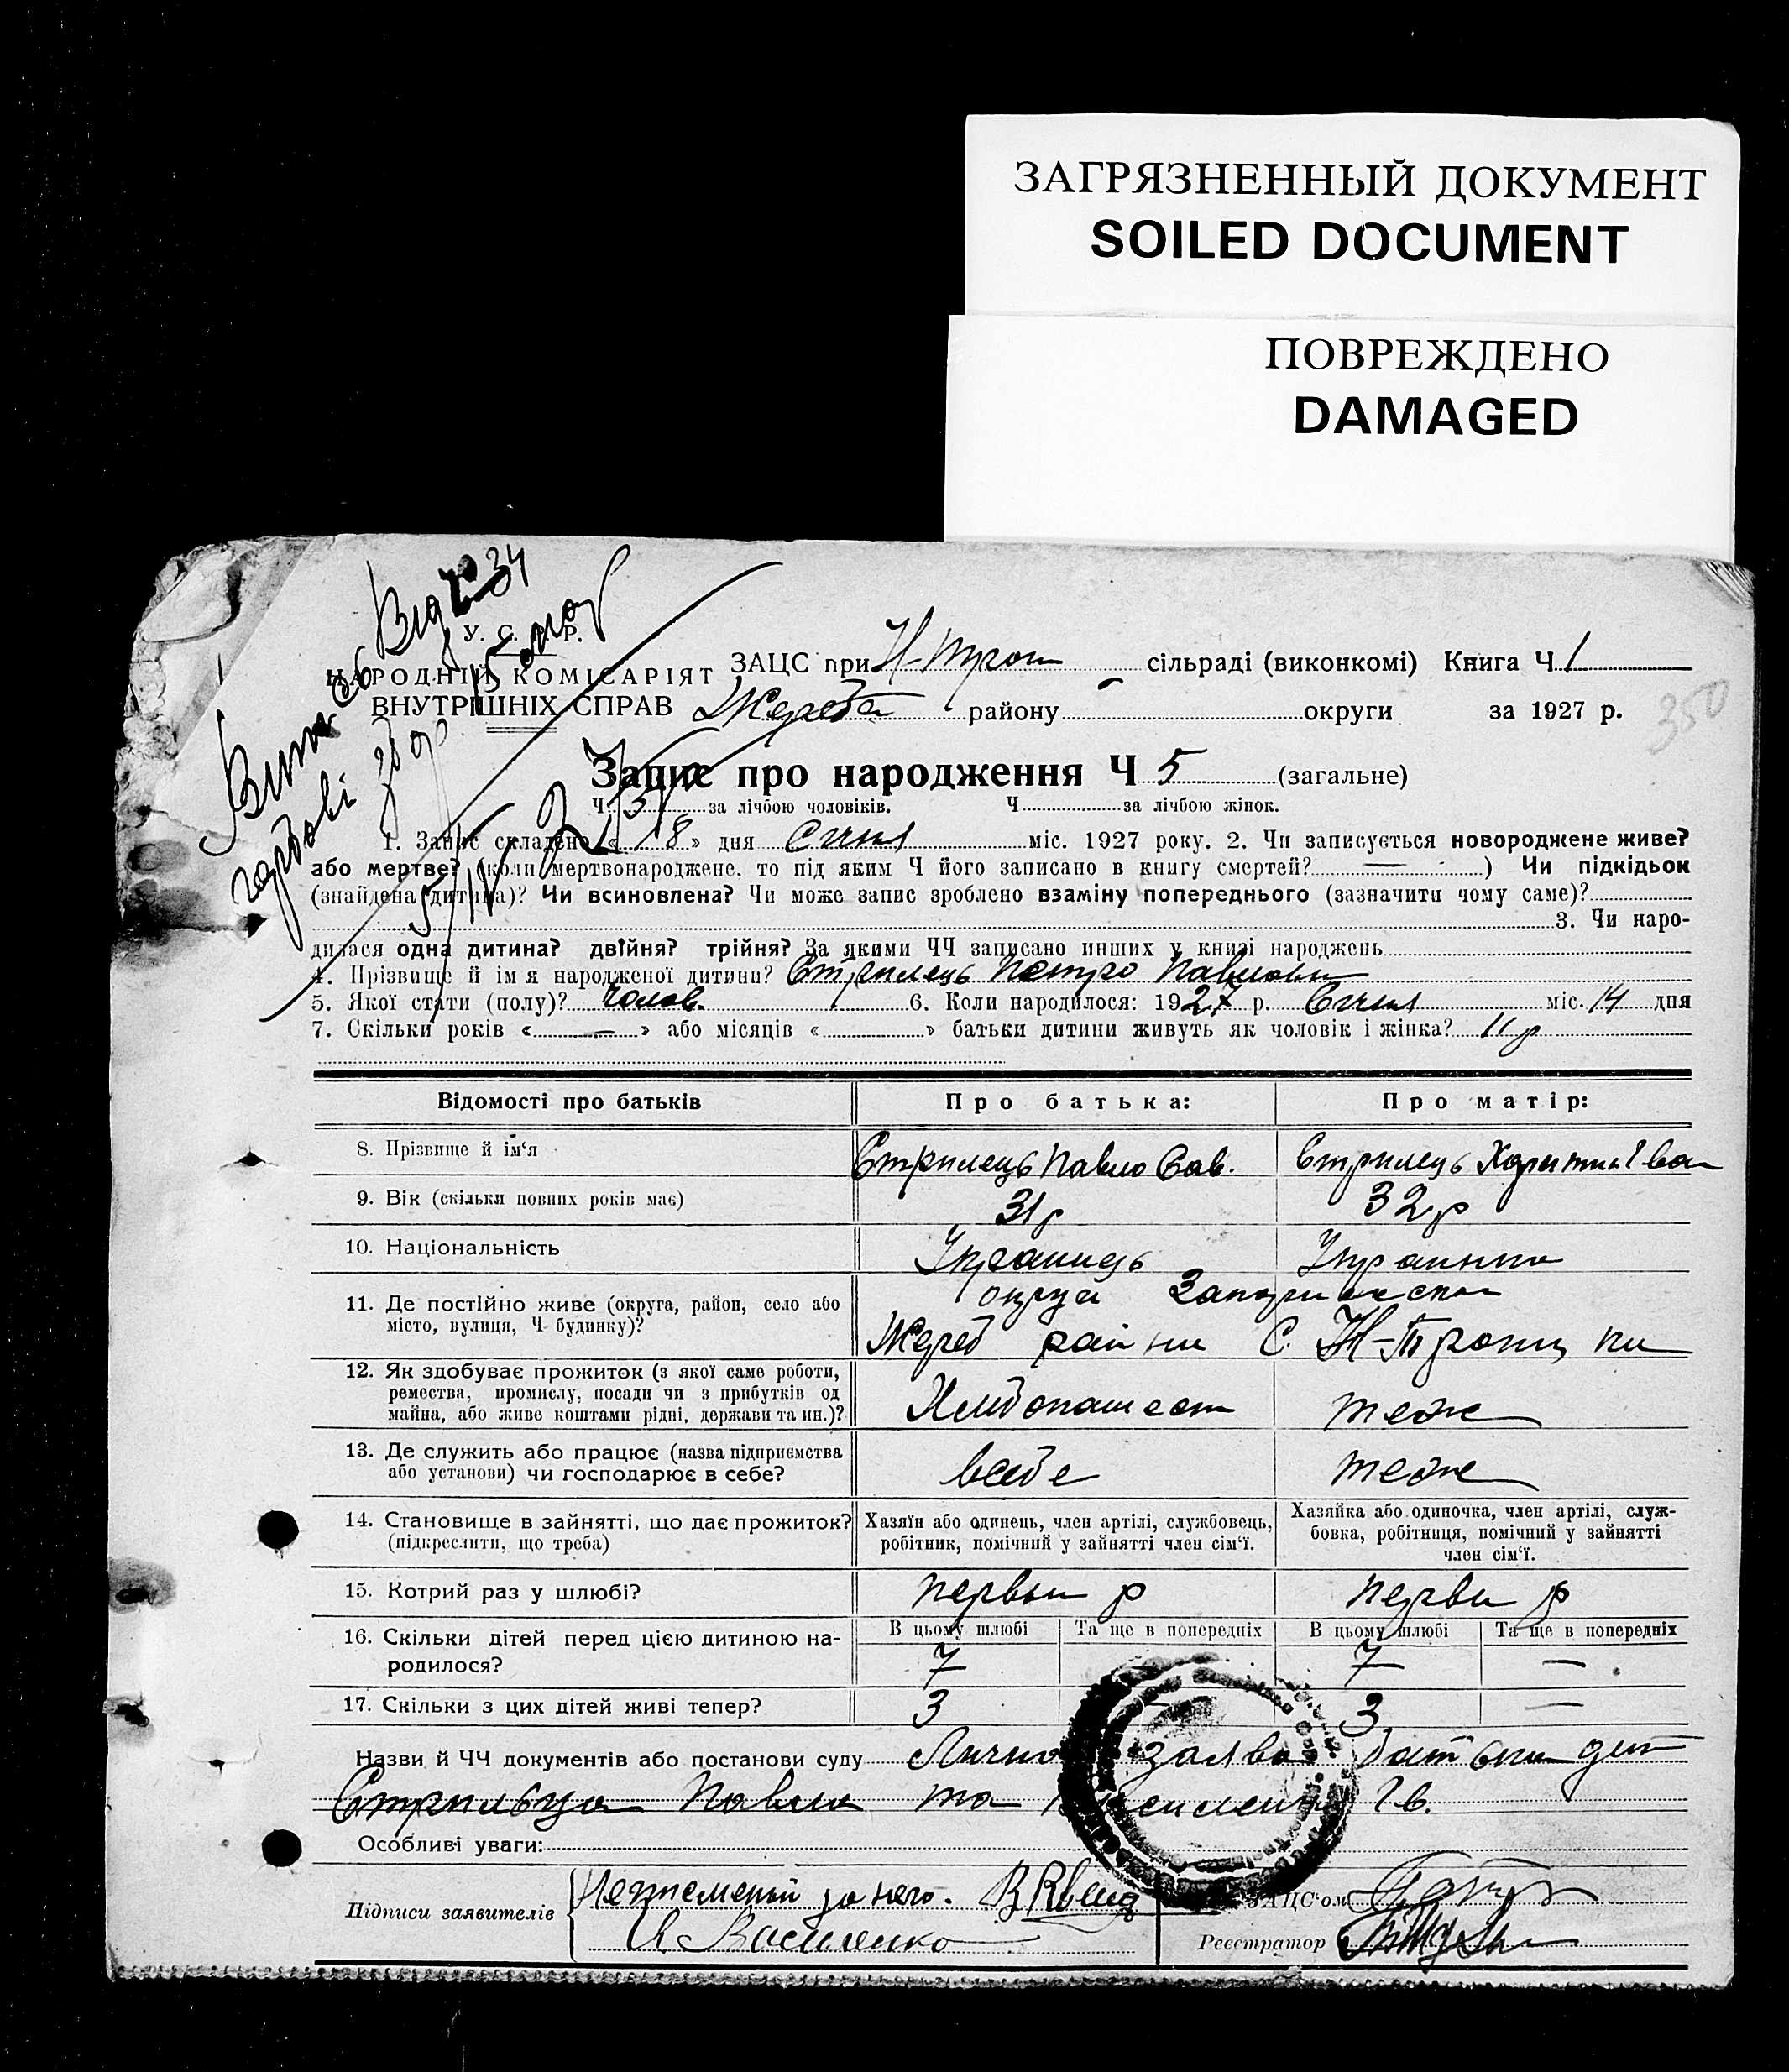 ЗАГРЯЗНЕННЫЙ ДОКУМЕНТ
SOILED DOCUMENT
ПОВРЕЖДЕНО
DAMAGED
У. С. Р. Р.
НАРОДНІЙ КОМІСАРІЯТ
ВНУТРІШНІХ СПРАВ
350
ЗАЦС при сільраді (виконкомі) Книга Ч 1
Жереб району округи за 1927 р.
Запис про народження Ч 5 (загальне)
Ч 5 за лічбою чоловіків. Ч за лічбою жінок.
1. Запис складено « 18 » дня Січня міс. 1927 року. 2. Чи записується новороджене живе?
або мертве? (коли мертвонароджене, то під яким Ч його записано в книгу смертей? — ) Чи підкідьок
(знайдена дитина)? Чи всиновлена? Чи може запис зроблено взаміну попереднього (зазначити чому саме)?
3. Чи наро-
дилася одна дитина? двійня? трійня? За якими ЧЧ записано инших у книзі народжень
4. Прізвище й ім я народженої дитини? Стрилець Петро Павлови
5. Якої стати (полу)? Чолов. 6. Коли народилося: 1927 р. Січня міс. 14 дня
7. Скільки років « — » або місяців « » батьки дитини живуть як чоловік і жінка? 11 р
Відомості про батьків Про батька: Про матір:
8. Прізвище й ім'я Стрилець Павло Сав. Стрилець Іван
9. Вік (скільки повних років має) 31 р 32 р
10. Національність Украинець Украинка
11. Де постійно живе (округа, район, село або
місто, вулиця, Ч будинку)?
округа
Жереб район С.
12. Як здобуває прожиток (з якої саме роботи,
ремества, промислу, посади чи з прибутків од
майна, або живе коштами рідні, держави та ин.)?
теже
13. Де служить або працює (назва підприємства
або установи) чи господарює в себе?
всебе теже
14. Становище в зайнятті, що дає прожиток?
(підкреслити, що треба)
Хазяїн або одинець, член артілі, службовець,
робітник, помічний у зайнятті член сім'ї.
Хазяйка або одиночка, член артілі, служ-
бовка, робітниця, помічний у зайнятті
член сім'ї.
15. Котрий раз у шлюбі? первый р перви р
16. Скільки дітей перед цією дитиною на-
родилося?
В цьому шлюбі Та ще в попередніх В цьому шлюбі Та ще в попередніх
7 7 —
17. Скільки з цих дітей живі тепер? 3 — 3 —
Назви й ЧЧ документів або постанови суду Лична заява дит
Стрильця Павла та Ів.
Особливі уваги:
Підписи заявителів
за него.
Василенко
ЗАЦС'ом
Реєстратор